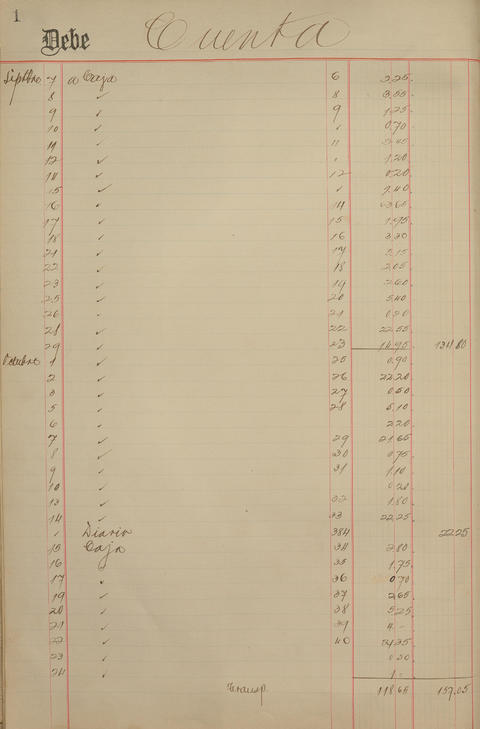 1
Debe Cuenta
Septbre 7 a Caja 6 2,25
8 ✓ 8
9 ✓ 9 1,25
10 ✓ ✓ 0,70
11 ✓ 11
12 ✓ ✓ 1,20
14 ✓ 12 0,20
15 ✓ ✓ 2,40
16 ✓ 14
17 ✓ 15 1,95
18 ✓ 16 3,30
21 ✓ 17 2,15
22 ✓ 18 2,05
23 ✓ 19 2,60
25 ✓ 20 5,40
26 ✓ 21 0,20
28 ✓ 22 22,55
29 ✓ 23 14,95 134,80
Octubre 1 ✓ 25 0,90
2 ✓ 26 22,20
3 ✓ 27 0,50
5 ✓ 28 5,10
6 ✓ 2,20
7 ✓ 29 21,65
8 ✓ 30 0,75
9 ✓ 31 1,10
10 ✓ 0,20
13 ✓ 32 1,80
14 ✓ 33 22,25
✓ Diario 384 22,25
15 Caja 34 2,80
16 ✓ 35 1,75
17 ✓ 36 0,70
19 ✓ 37 2,65
20 ✓ 38 5,25
21 ✓ 39 4,-
22 ✓ 40
23 ✓ 0,20
24 ✓ 1,-
Transp. 118,65 157,05